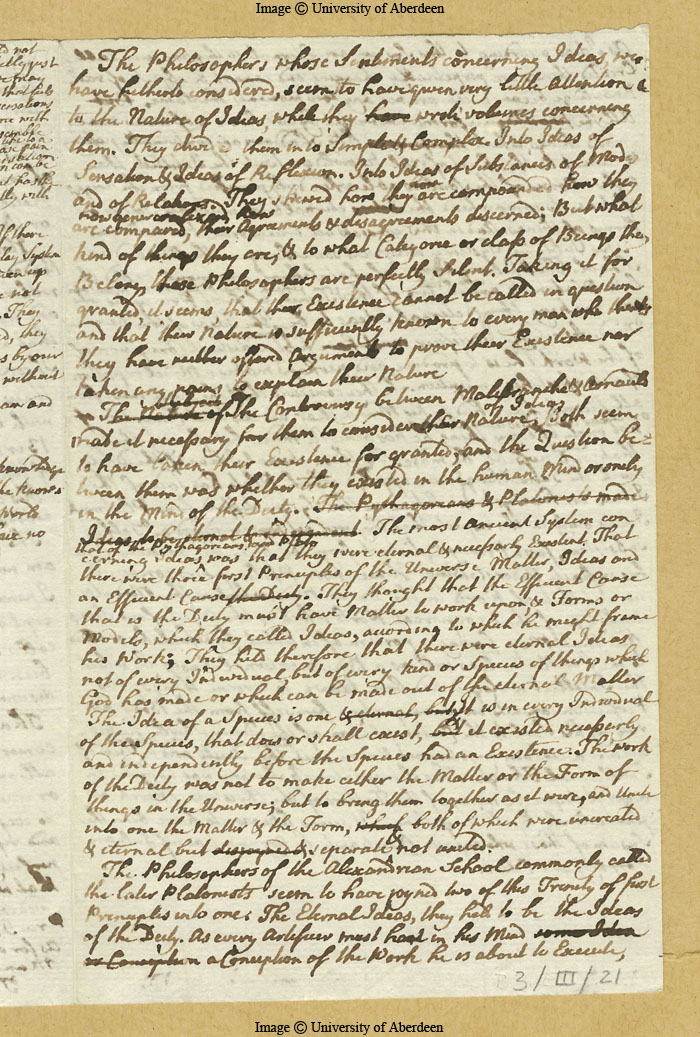 Image © University of Aberdeen
The Philosophers whose Sentiments concerning Ideas, we
have hitherto considered, seem to have given very little Attention
to the Nature of Ideas, while they have wrote volumes concerning
them. They divide them into Simple & Complex. Into Ideas of
Sensation & Ideas of Reflexion. Into Ideas of Substances of Modes
and of Relations. They shewed how they are compounded how they
now
are compared, their Agreements & disagreements discerned; But what
kind of things they are, & to what Category or class of Beings they
Belong, these Philosophers are perfectly Silent. Taking it for
granted it seems, that their Existence cannot be called in question
and that their Nature is sufficiently known to every man who thinks
they have neither offered Arguments to prove their Existence nor
taken any pains to explain their Nature
The Nature of The Controversy between Malebranche & Arnauld
of Ideas
made it necessary for them to consider their Nature. Both seem
to have taken their Existence for granted, and the Question be=
tween them was whether they existed in the human Mind or only
in the Mind of the Deity. The Pythagoreans & Platonists made
Ideas to be eternal & The most ancient System con
that of the Pythagoreans and Plato
cerning Ideas was that they were eternal & necessarly Existent. That
there were three first Principles of the Universe Matter, Ideas and
an Efficient Cause the Deity. They thought that the Efficient Cause
that is the Deity must have Matter to work upon, & Forms or
Models, which they called Ideas, according to which he might frame
his Work; They held therefore that there were eternal Ideas
not of every Individual, but of every kind or Species of things which
God has made or which can be made out of the eternal Matter
The Idea of a Species is one & eternal, but It is in every Individual
of the Species, that does or shall exist, but it existed necessarly
and independently before the Species had an Existence. The work
of the Deity was not to make either the Matter or the Form of
things in the Universe; but to bring them together as it were, and Unite
into one the Matter & the Form, which both of which were uncreated
& eternal but disjoyned & separate & not united.
The Philosophers of the Alexandrian School commonly called
the later Platonists seem to have joyned two of this Trinity of first
Principles into one; The Eternal Ideas, they held to be the Ideas
of the Deity. As every Artificer must have in his Mind some Idea
or Conception a Conception of the Work he is about to Execute,
3/III/21
Image © University of Aberdeen